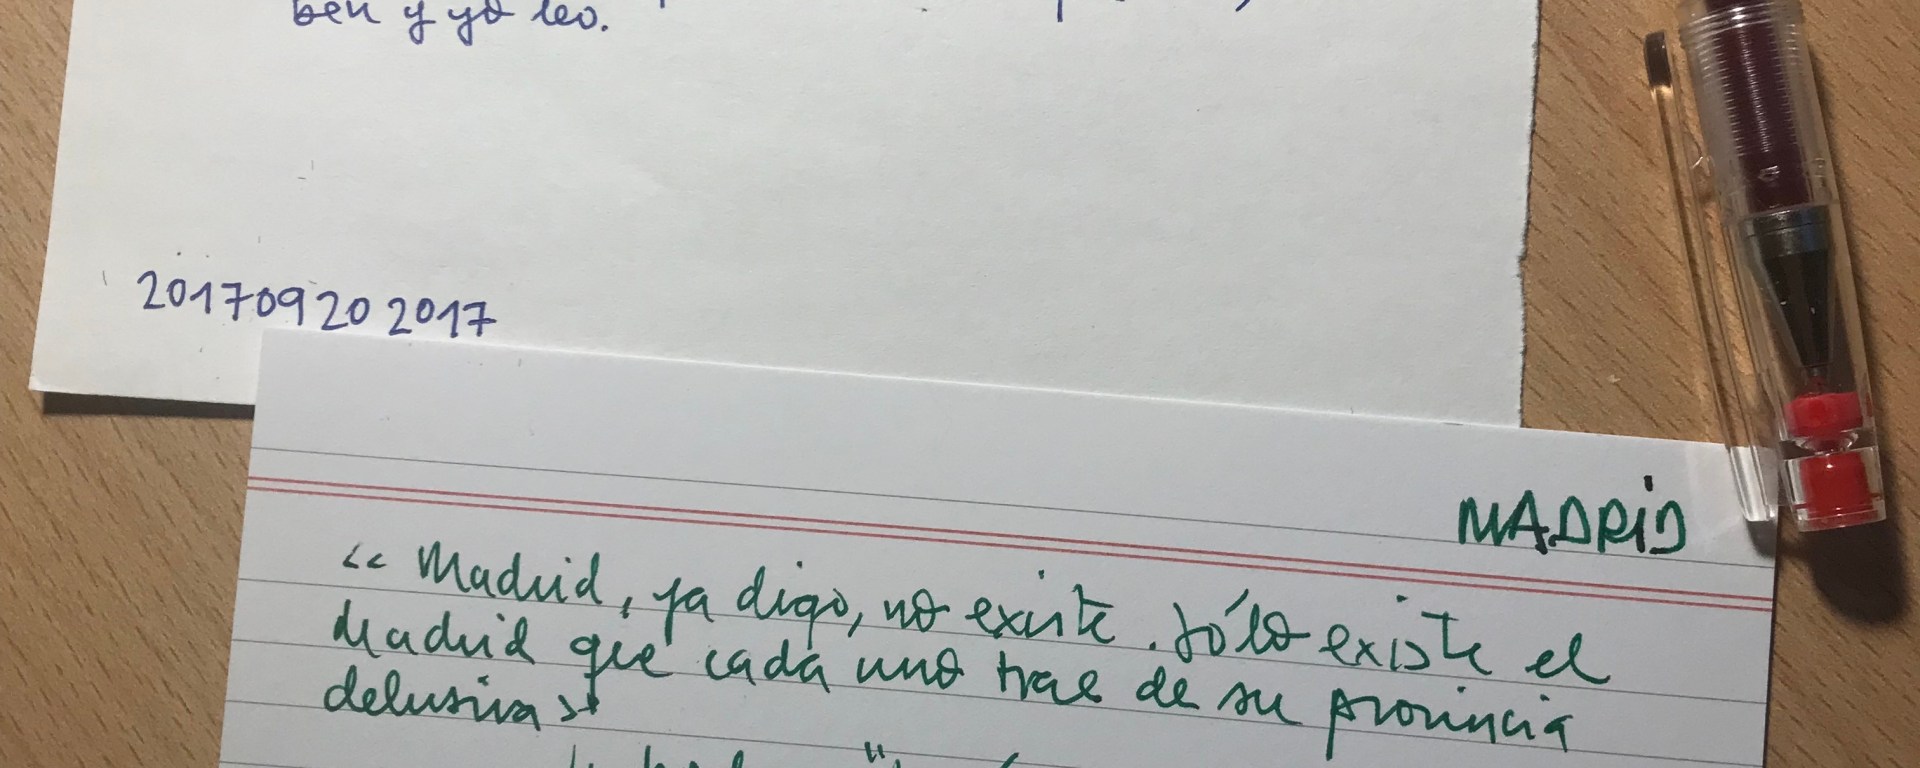 ben y yo leo.
20170920 2017
MADRID
<< Madrid, ya digo, no existe. Sólo existe el
Madrid que cada uno trae de su provincia
delusiva >>